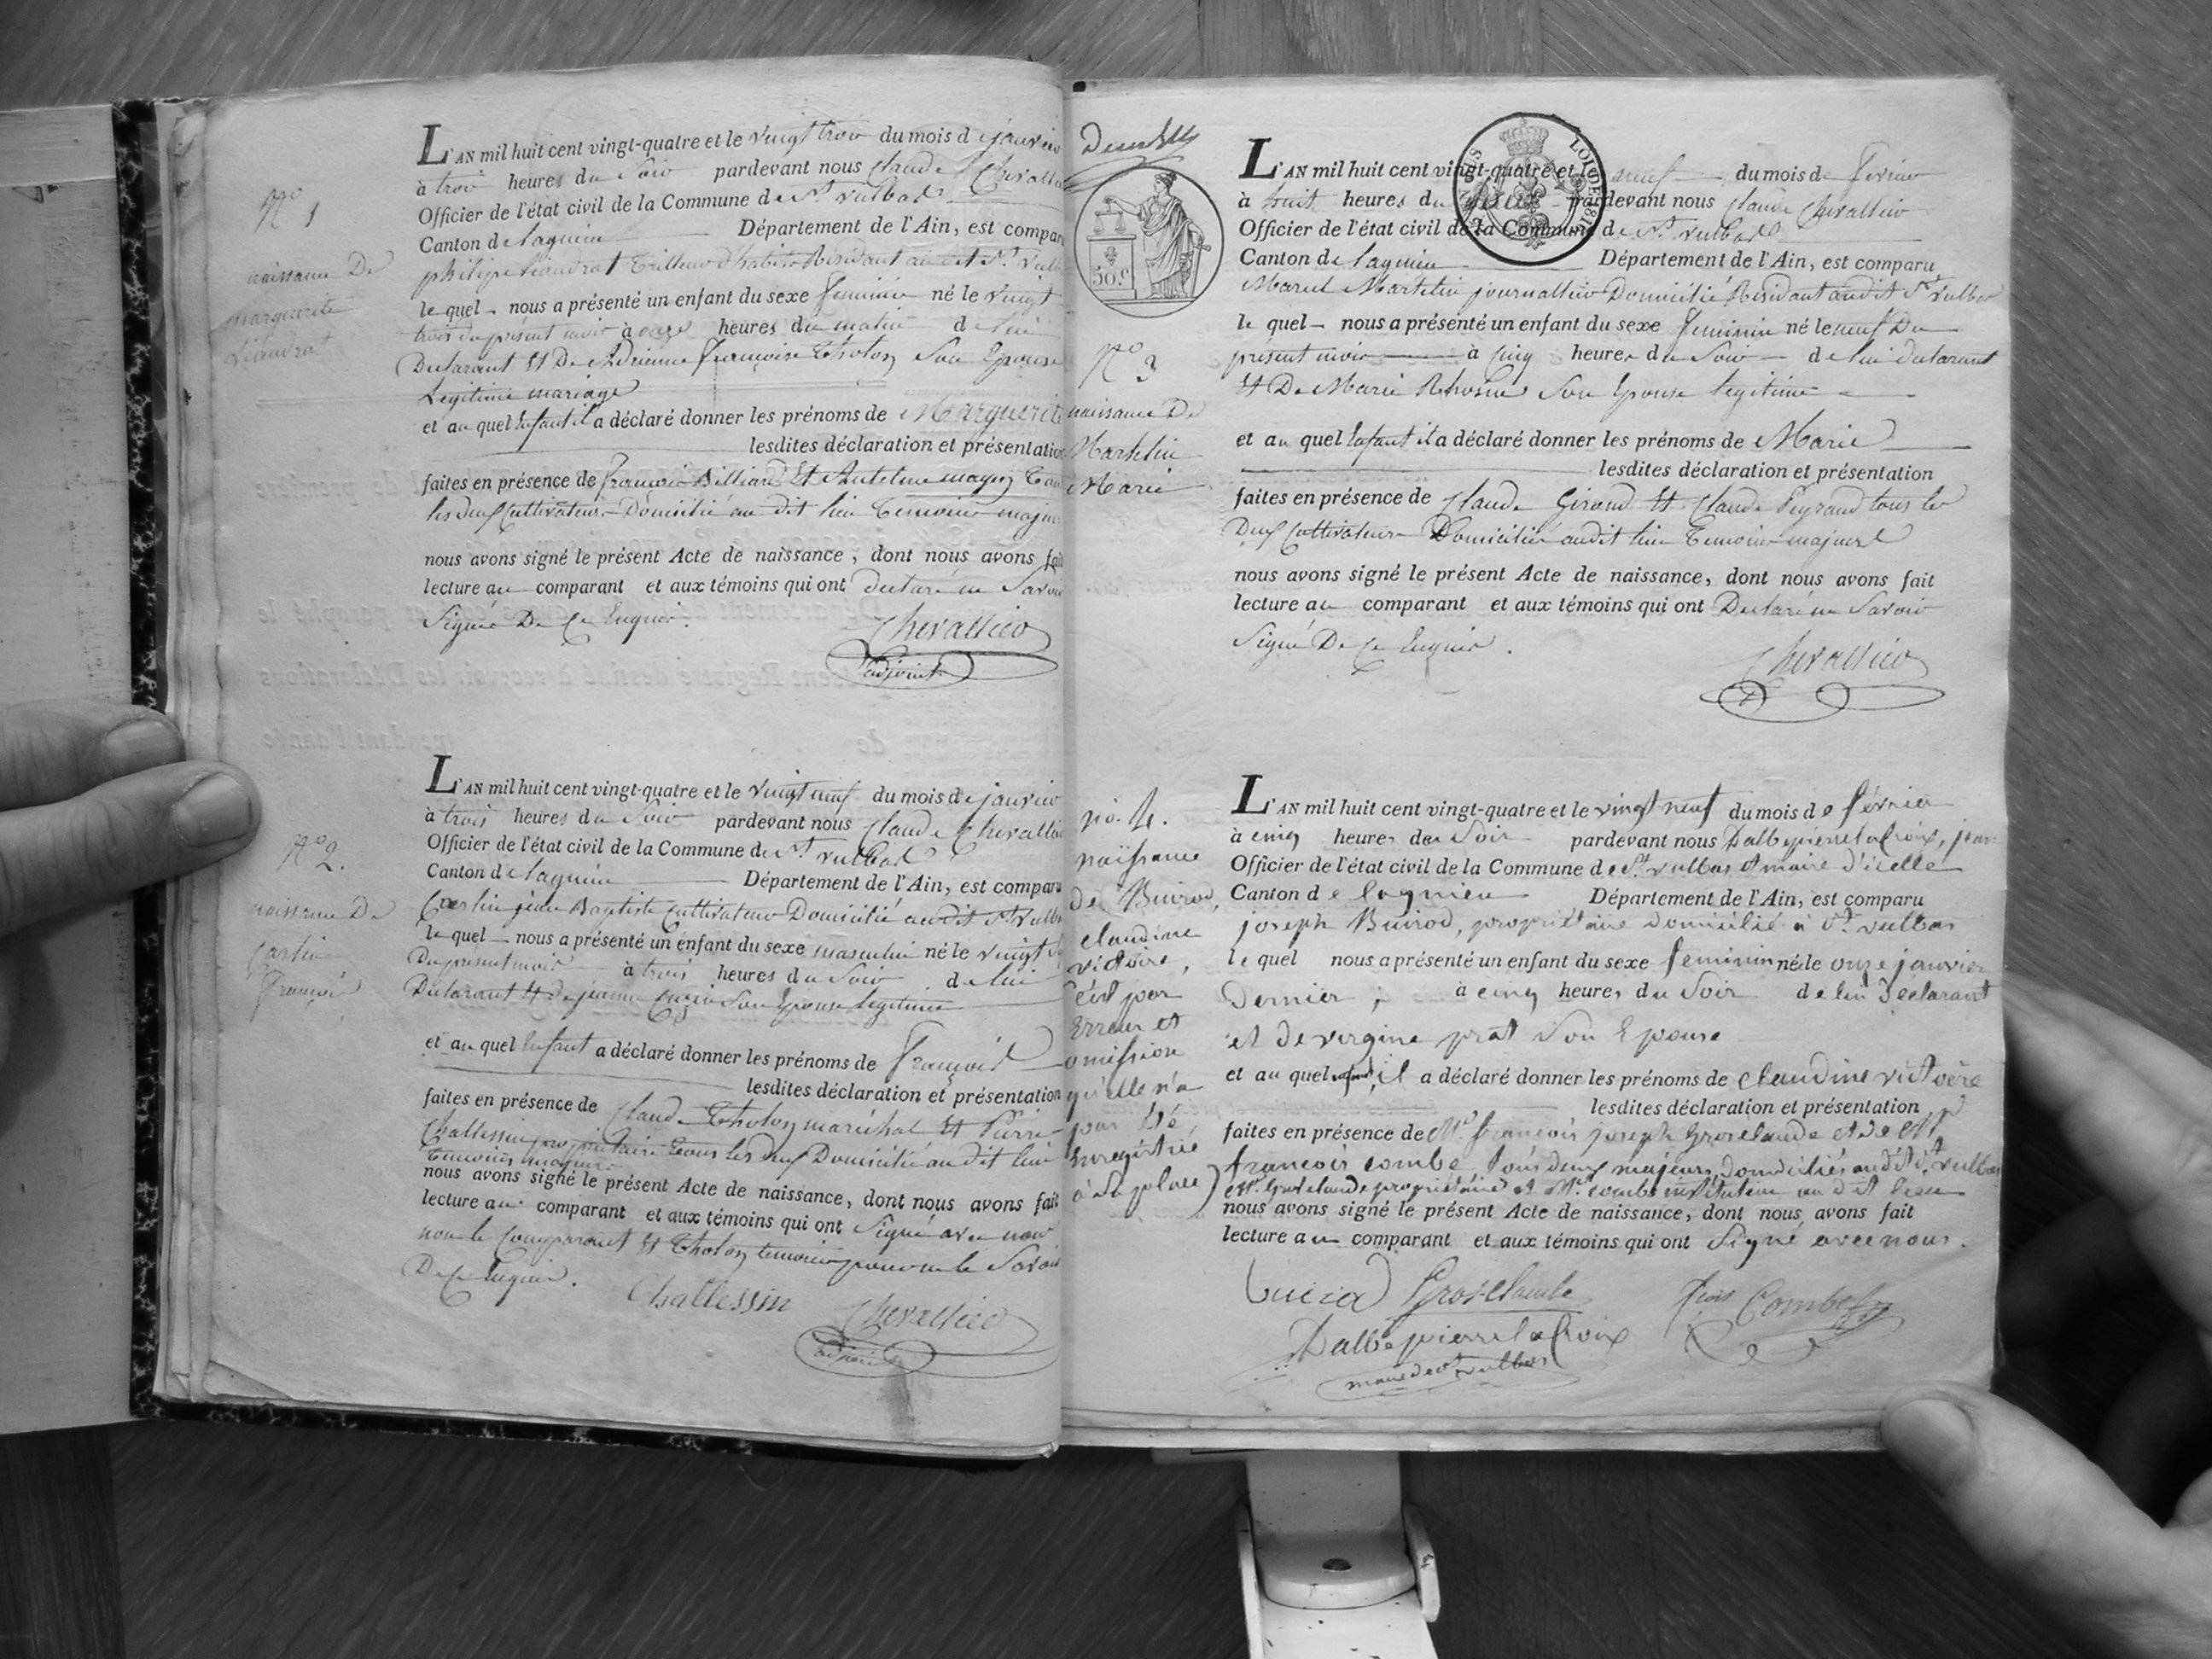 N° 1
naissance De
marguerite
L'AN mil huit cent vingt-quatre et le vingt trois du mois de janvier
à trois heures du Soir pardevant nous Claude Chevallier
Officier de l'état civil de la Commune de St. vulbas
Canton de lagnieu Département de l'Ain, est comparu
philipe tailleur d'habits Résidant audit St. vulbas
le quel nous a présenté un enfant du sexe feminin né le vingt
trois du présent mois à onze heures du matin de lui
Declarant Et De Adrienne françoise Tholon Son Epouse
Legitime mariage
et au quel Enfant il a déclaré donner les prénoms de Marguerite
lesdites déclaration et présentation
faites en présence de françois Billiard Et Antelme tous
les deux Cultivateurs Domicilié au dit lieu Temoins majeurs
nous avons signé le présent Acte de naissance, dont nous avons fait
lecture au comparant et aux témoins qui ont declaré ne Savoir
Signer De Ce Enquis.
Chevallier
adjoint
N° 2.
naissance De
Cartin
François
L'AN mil huit cent vingt-quatre et le vingt neuf du mois de janvier
à trois heures du Soir pardevant nous Claude Chevallier
Officier de l'état civil de la Commune de St. vulbas
Canton de lagnieu Département de l'Ain, est comparu
jean Baptiste Cultivateur Domicilié audit St. vulbas
le quel nous a présenté un enfant du sexe masculin né le vingt
Du present mois à trois heures du Soir de lui
Declarant Et de jeanne Son Epouse legitime
et au quel Enfant a déclaré donner les prénoms de François
lesdites déclaration et présentation
faites en présence de Claude Tholon maréchal Et Pierre
Challessin propriétaire tous les deux Domicilié au dit lieu
Temoins majeurs
nous avons signé le présent Acte de naissance, dont nous avons fait
lecture au comparant et aux témoins qui ont Signé avec nous
non le Comparant Et Tholon temoin pour ne le Savoir
De Ce Enquis.
Challessin Chevallier
adjoint
50 c.
N° 3
naissance De
Martelin
Marie
L'AN mil huit cent vingt-quatre et le neuf du mois de Fevrier
à huit heures du pardevant nous Claude Chevallier
Officier de l'état civil de la Commune de St. vulbas
Canton de lagnieu Département de l'Ain, est comparu
Martelin journallier Domicilié Résidant audit St. vulbas
le quel nous a présenté un enfant du sexe feminin né le neuf Du
present mois à cinq heures du Soir de lui declarant
Et De Marie Son Epouse legitime
et au quel Enfant il a déclaré donner les prénoms de Marie
lesdites déclaration et présentation
faites en présence de Claude Giroud Et Claude Peyraud tous les
Deux Cultivateurs Domicilié audit lieu Temoins majeurs
nous avons signé le présent Acte de naissance, dont nous avons fait
lecture au comparant et aux témoins qui ont Declaré ne Savoir
Signé De Ce Enquis.
Chevallier
no. 4.
naissance
de Buirod,
claudine
victoire,
c'est par
Erreur et
omission
qu'elle n'a
pas été
Enregistrée
à Sa place)
L'AN mil huit cent vingt-quatre et le vingt neuf du mois de février
à cinq heures du Soir pardevant nous Dalbepierrelacroix, jean
Officier de l'état civil de la Commune de St. vulbas et maire d'icelle
Canton de lagnieu Département de l'Ain, est comparu
joseph Buirod, propriétaire domicilié à St. vulbas
le quel nous a présenté un enfant du sexe feminin né le onze janvier
Dernier, à cinq heures du Soir de lui Déclarant
et de virgine prat Son Epouse
et au quel enfant, il a déclaré donner les prénoms de claudine victoire
lesdites déclaration et présentation
faites en présence de Mr. françois joseph Grosclaude et de Mr
françois combe tous deux majeurs, domiciliés audit St. vulbas
Mr. Grosclaude propriétaire et Mr. combe instituteur au dit lieu
nous avons signé le présent Acte de naissance, dont nous avons fait
lecture au comparant et aux témoins qui ont Signé avec nous.
Buirod Grosclaude fcois Combe
Dalbepierrelacroix
maire de St vulbas